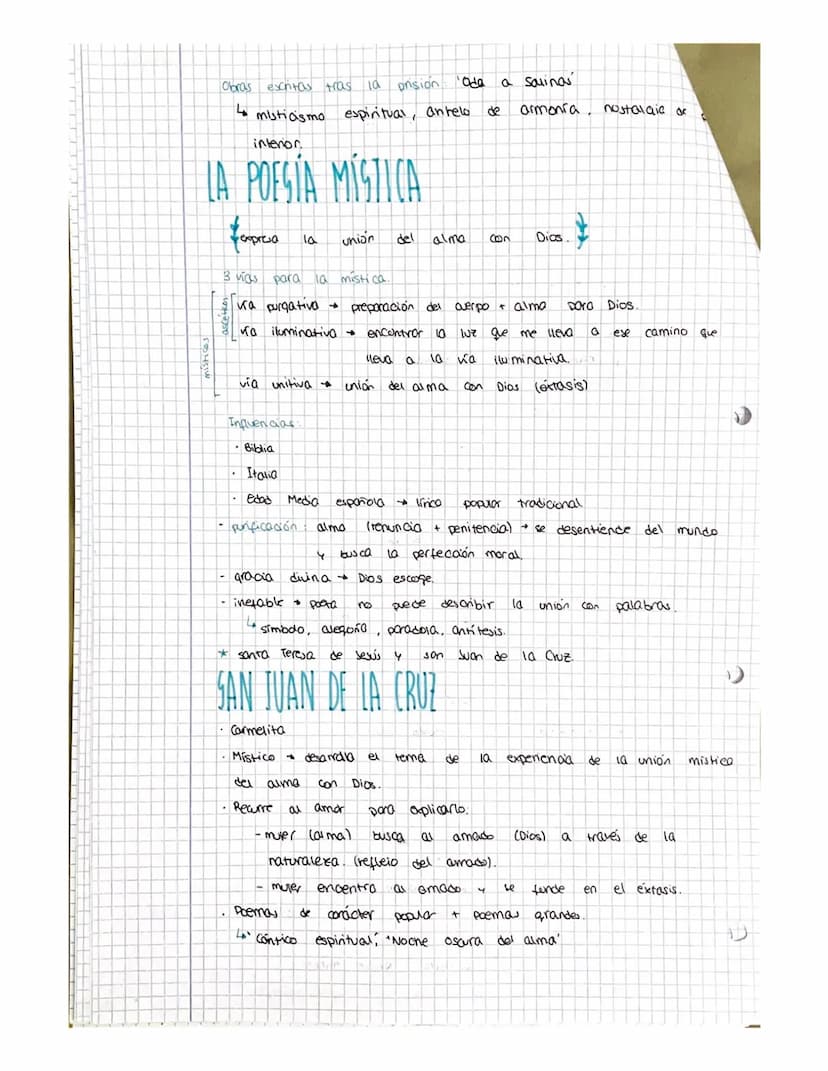 Obras escritas tras la prisión: 'Oda a Salinas'
↳ misticismo espiritual, anhelo de armonía, nostalgia de
interior.
LA POESÍA MÍSTICA
expresa la unión del alma con Dios.
3 vías para la mística.
místicos
ascetas
vía purgativa → preparación del cuerpo + alma para Dios.
vía iluminativa → encontrar la luz que me lleva a ese camino que
lleva a la vía iluminativa.
vía unitiva → unión del alma con Dios (éxtasis)
Influencias:
· Biblia
· Italia
· Edad Media española → lírica popular tradicional
- purificación: alma (renuncia + penitencia) → se desentiende del mundo
y busca la perfección moral.
- gracia divina → Dios escoge.
- inefable → poeta no puede describir la unión con palabras.
↳ símbolo, alegoría, paradoja, antítesis.
* santa Teresa de Jesús y san Juan de la Cruz.
SAN JUAN DE LA CRUZ
· Carmelita
· Místico → desarrolla el tema de la experiencia de la unión mística
del alma con Dios.
· Recurre al amor para explicarlo:
- mujer (alma) busca al amado (Dios) a través de la
naturaleza. (reflejo del amado).
- mujer encuentra al amado y se funde en el éxtasis.
· Poemas de carácter popular + poemas grandes.
↳ 'Cántico espiritual', 'Noche oscura del alma'